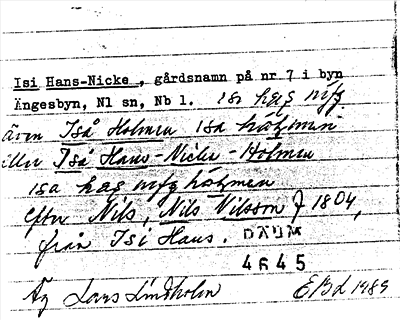 Isi Hans-Nicke, gårdsnamn på nr 7 i byn
Ängesbyn, Nl sn, Nb l. isi
även Iså Holmen isa hålmen
eller Iså Hans-Nicke-Holmen
isa hålmen
efter Nils, Nils Nilsson f 1804,
från Isi Hans. DAUM
4645
Äg Lars Lindholm EBd 1989